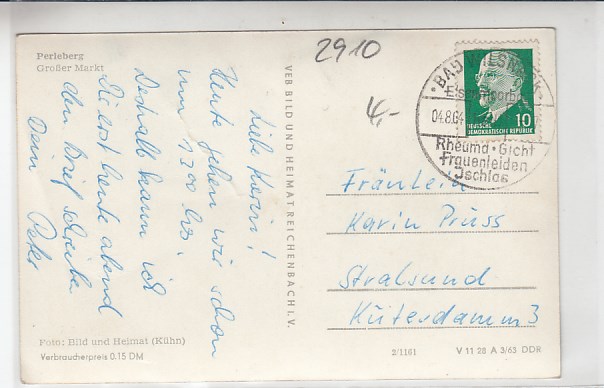 Perleberg
Großer Markt
Liebe Karin!
Heute gehen wir schon
um 1300 los.
Deshalb kann ich
Dir erst heute abend
den Brief schreiben
Dein Peter
Foto: Bild und Heimat (Kühn)
Verbraucherpreis 0.15 DM
VEB BILD UND HEIMAT REICHENBACH I. V.
2910
4,-
BAD WILSNACK
Eisenmoorbad
04.8.64
Rheuma · Gicht
Frauenleiden
Ischias
10
DEUTSCHE
DEMOKRATISCHE REPUBLIK
Fräulein
Karin Pruss
Stralsund
Küterdamm 3
2/1161
V 11 28 A 3/63 DDR